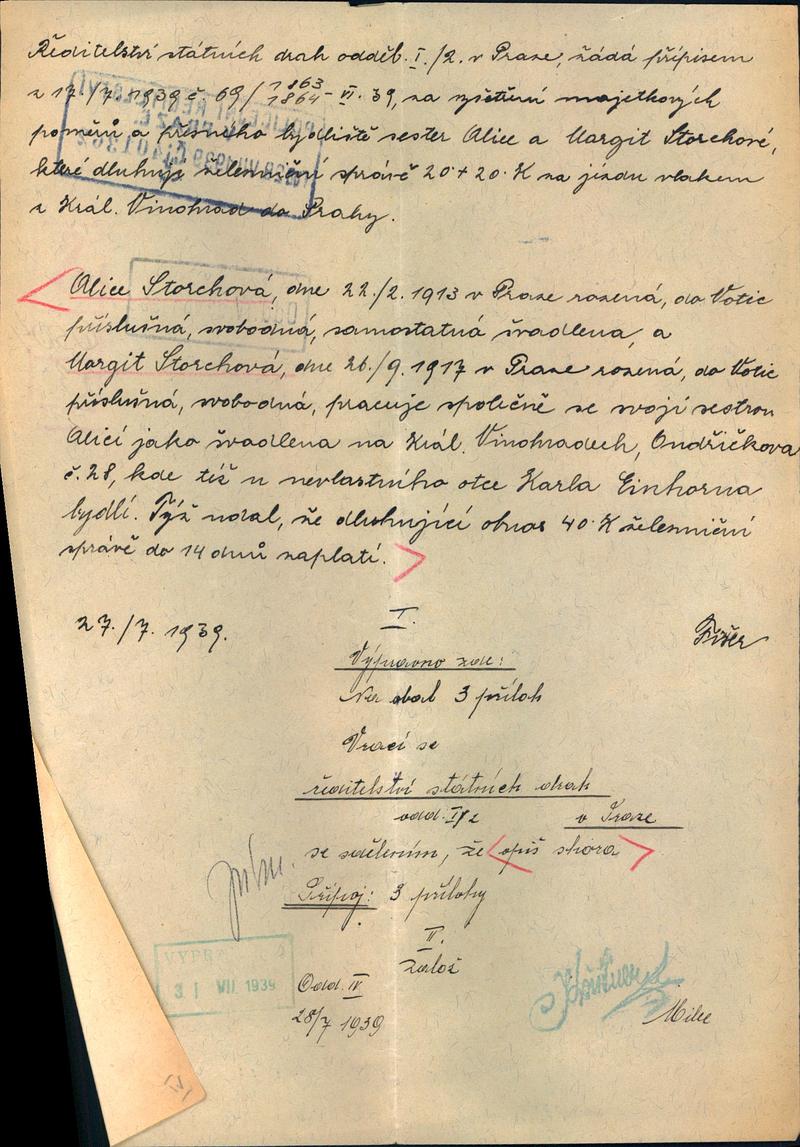 Ředitelství státních drah odděl. I./2. v Praze, žádá přípisem
z 17./7. 1939 č 69/1863 1864-VI. 39, za zjištění majetkových
poměrů a přesného bydliště sester Alice a Margit Storchové,
které dluhuje železniční správě 20 + 20 K za jízdu vlakem
z Král. Vinohrad do Prahy.
Alice Storchová, dne 22./2. 1913 v Praze rozená, do Votic
příslušná, svobodná, samostatná švadlena, a
Margit Storchová, dne 26./9. 1917 v Praze rozená, do Votic
příslušná, svobodná, pracuje společně se svojí sestrou
Alicí jako švadlena na Král. Vinohradech, Ondříčkova
č. 28, kde též u nevlastního otce Karla Einhorna
bydlí. Týž udal, že dluhující obnos 40 K železniční
správě do 14 dnů zaplatí.
27./7. 1939.
I.
Výpravno zde:
Na obal 3 příloh
Vrací se
ředitelství státních drah
odd. I/2 v Praze
se sdělením, že opis shora
Připoj: 3 přílohy
II.
Založ
VYPR
31 VII. 1939
Odd. IV
28/7 1939
IV